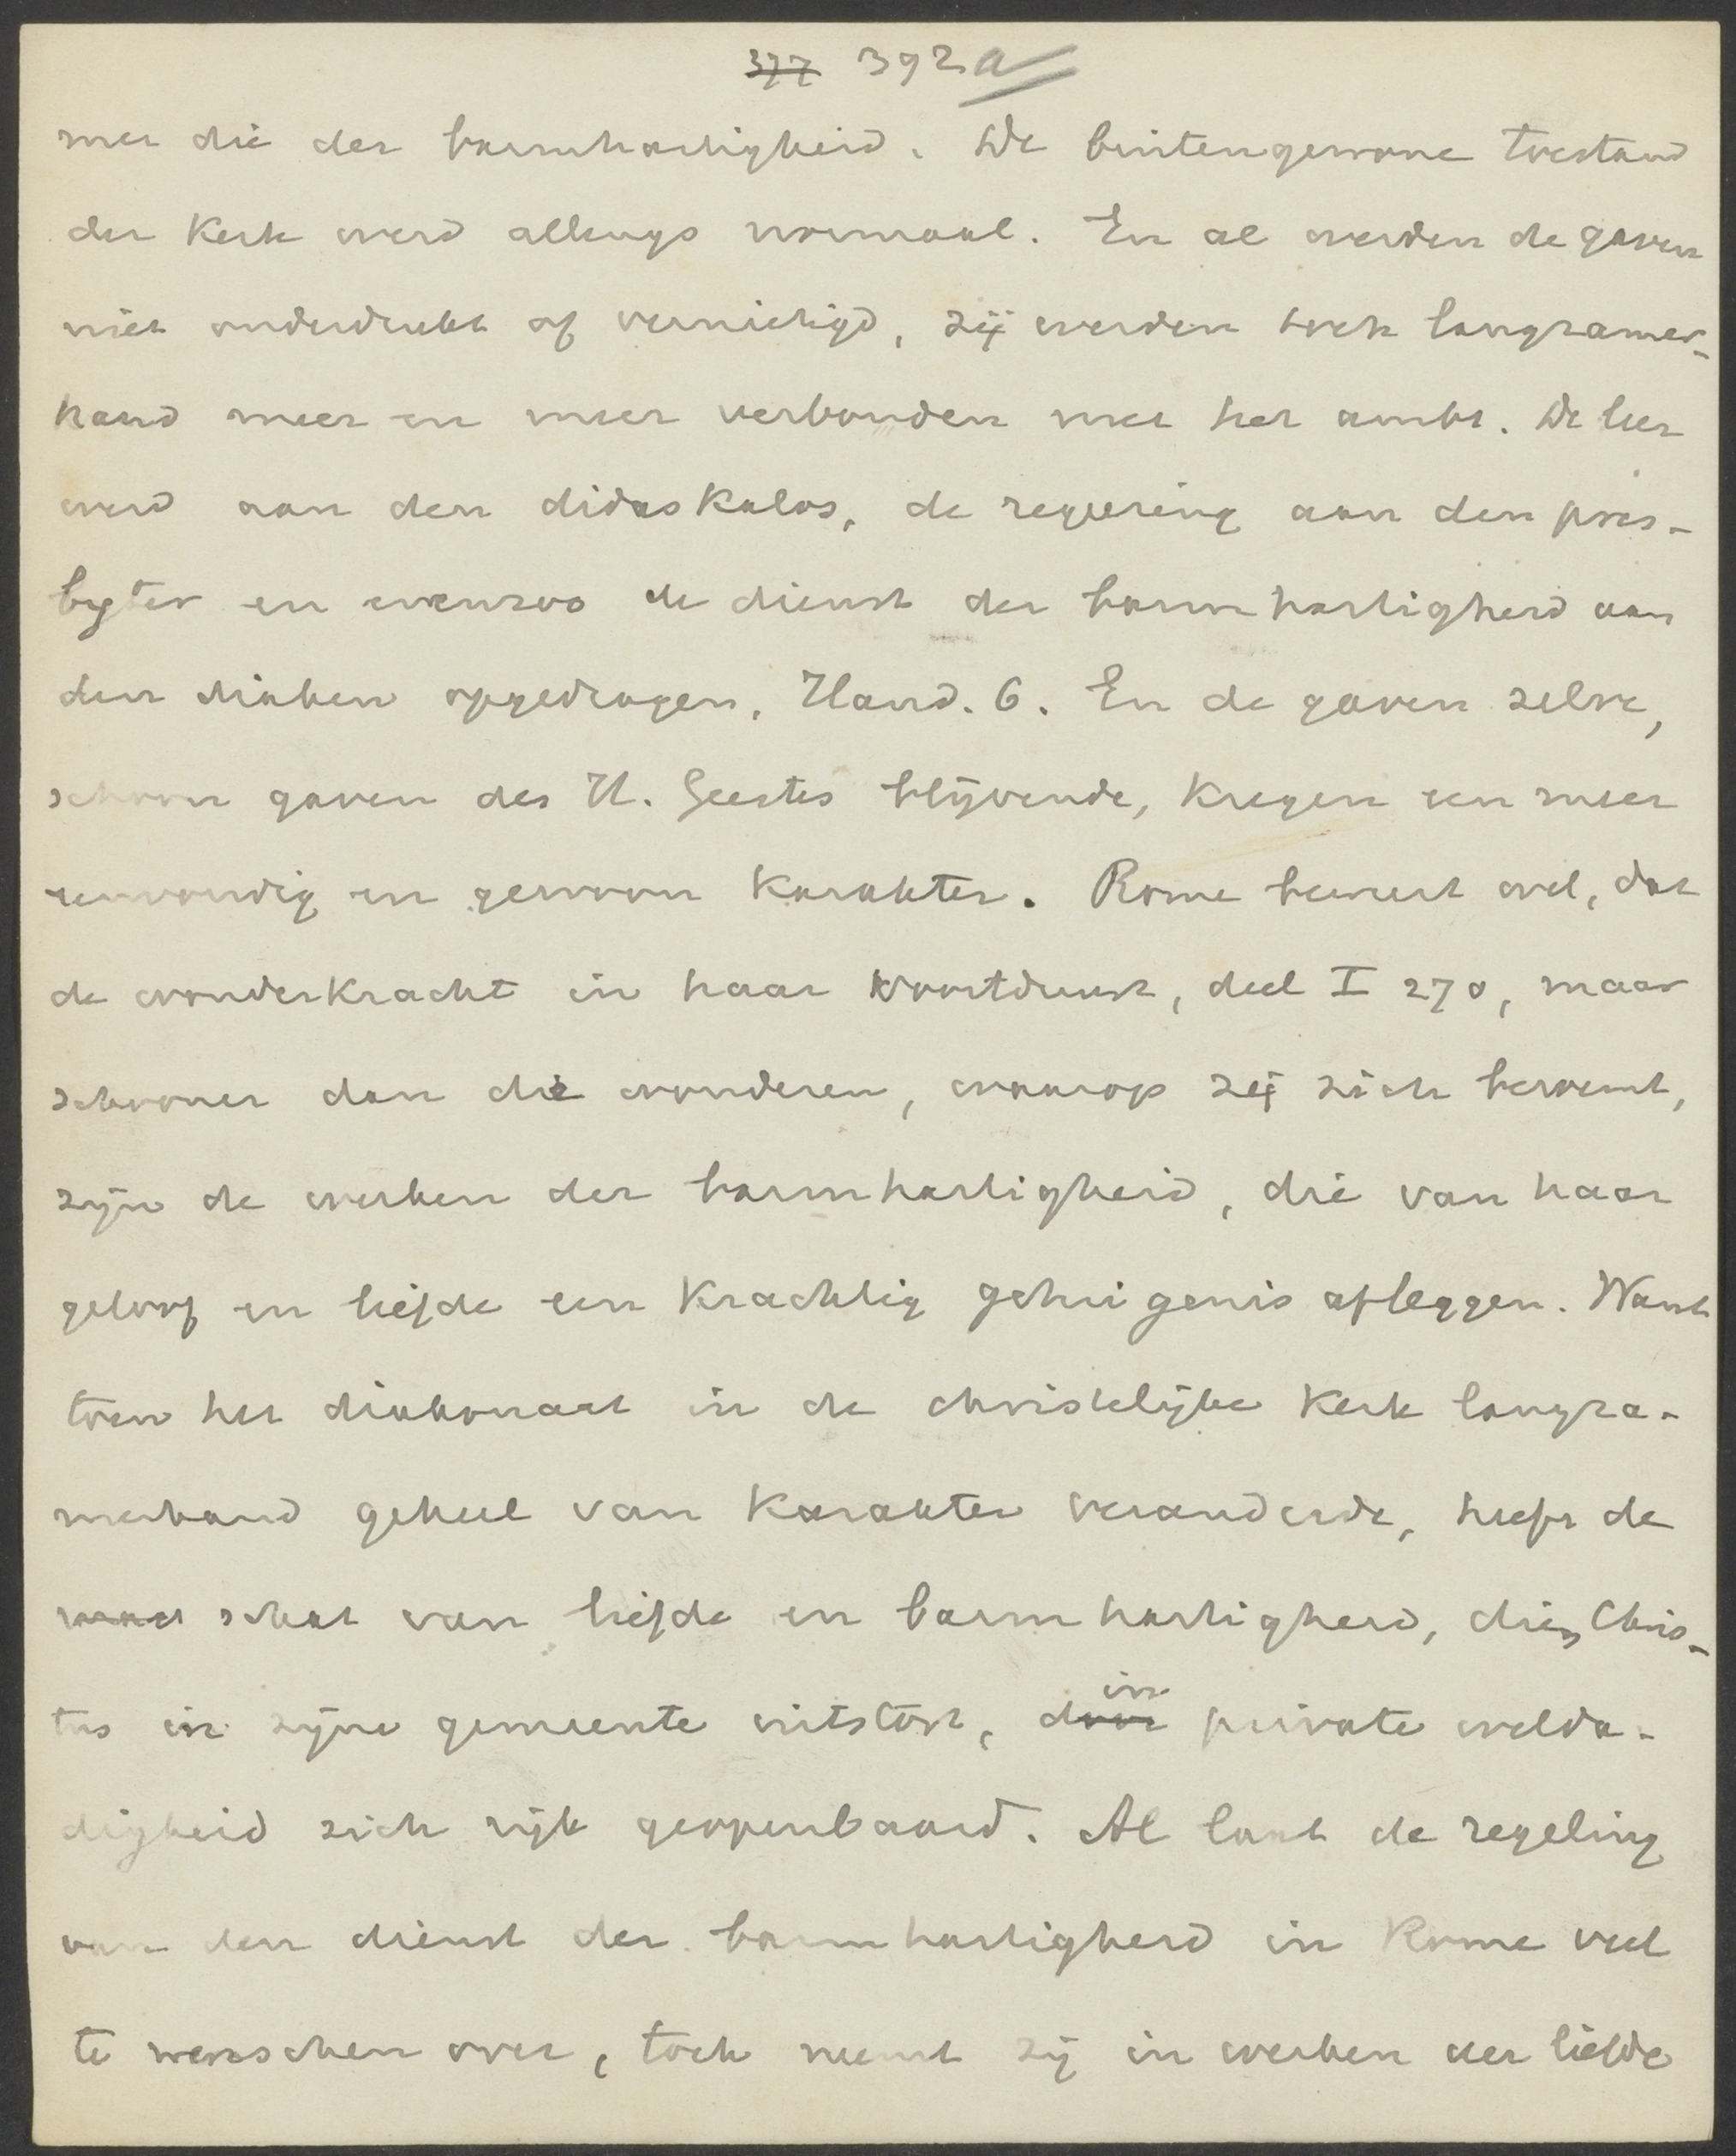 377 392a
met die der barmhartigheid. De buitengewone toestand
der kerk werd allengs normaal. En al werden de gaven
niet onderdrukt of vernietigd, zij werden toch langzamer-
hand meer en meer verbonden met het ambt. De leer
werd aan den didaskalos, de regeering aan den pres-
byter en evenzoo de dienst der barmhartigheid aan
den diaken opgedragen, Hand. 6. En de gaven zelve,
schoon gaven des H. Geestes blijvende, kregen een meer
eenvoudig en gewoon karakter. Rome beweert wel, dat
de wonderkracht in haar voortduurt, deel I 270, maar
schooner dan die wonderen, waarop zij zich beroemt,
zijn de werken der barmhartigheid, die van haar
geloof en liefde een krachtig getuigenis afleggen. Want
toen het diakonaat in de christelijke kerk langza-
merhand geheel van karakter veranderde, heeft de
schat van liefde en barmhartigheid, die Chris-
tus in zijne gemeente uitstort, door in private welda-
digheid zich rijk geopenbaard. Al laat de regeling
van den dienst der barmhartigheid in Rome veel
te wenschen over, toch neemt zij in werken der liefde